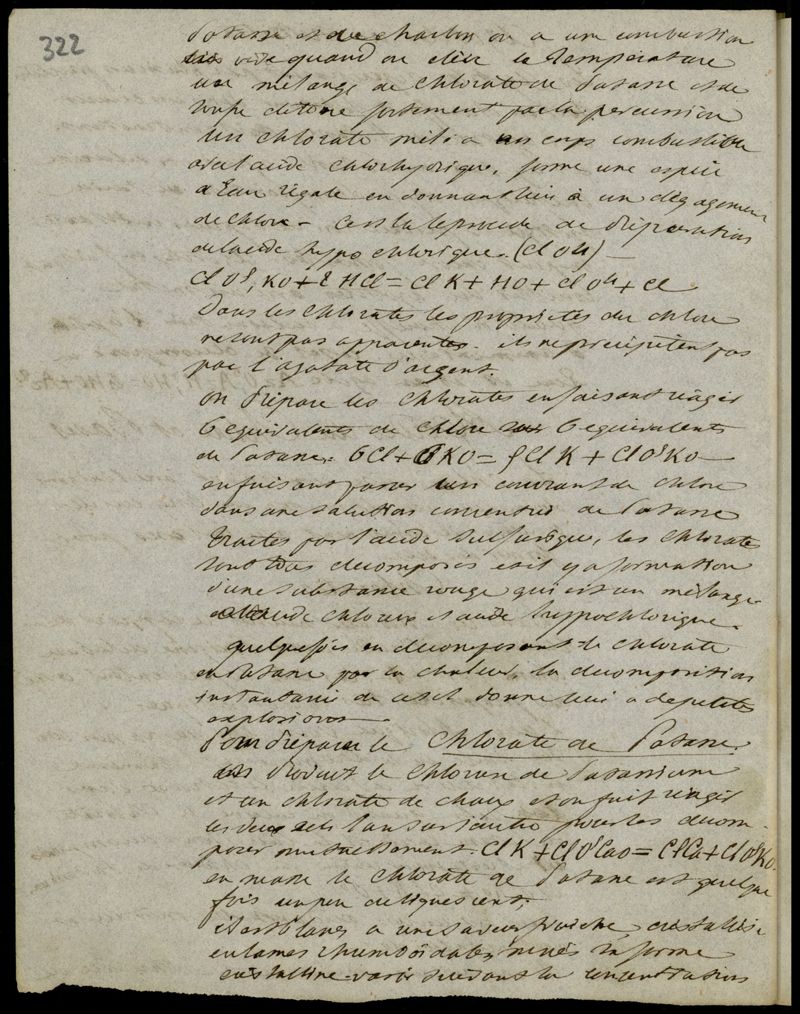 322
Potasse et de charbon on a une combustion
vive quand on élève la température
un mélange de chlorate de Potasse et de
soufre détone fortement par la percussion
Un chlorate mêlé a un corps combustible
avec l'acide chlorhydrique, forme une espèce
d'Eau régale en donnant lieu à un dégagement
de chlore - c'est la le procédé de préparation
de l'acide hypochlorique. (Cl O4) —
Cl O5, KO + 2 HCl = Cl K + HO + Cl O4 + Cl
Dans les chlorates les propriétés du chlore
ne sont pas apparentes. ils ne precipitent pas
par l'azotate d'argent.
on prépare les chlorates en faisant réagir
6 equivalents de chlore sur 6 equivalents
de Potasse. 6Cl + 6KO = 5Cl K + Cl O5 KO —
en faisant passer un courant de chlore
dans une solution concentrée de Potasse
Traités par l'acide sulfurique, les chlorates
sont tous décomposés et il y a formation
d'une substance rouge qui est un mélange
d'acide chloreux et acide hypochlorique.
quelquefois en decomposant le chlorate
de Potasse par la chaleur, la décomposition
instantanée de ce sel donne lieu a de petites
explosions —
Pour préparer le Chlorate de Potasse
on produit le chlorure de Potassium
et un chlorate de chaux et on fait réagir
les deux sels l'un sur l'autre pour les décom-
poser mutuellement. Cl K + Cl O5 CaO = Cl Ca + Cl O5 KO.
en masse le chlorate de Potasse est quelque
fois un peu deliquescent;
il est blanc a une saveur fraiche, cristallise
en lames rhomboïdales, mais la forme
cristalline varie suivant la concentration